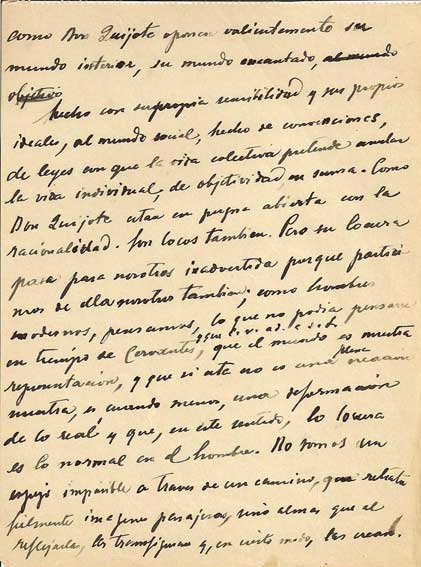 como Don Quijote oponen valientemente su
mundo interior, su mundo encantado, al mundo
objetivo
hecho con su propia sensibilidad y sus propios
ideales, al mundo social, hecho de convenciones,
de leyes con que la vida colectiva pretende anular
la vida individual, de objetividad, en suma. Como
Don Quijote estan en pugna abierta con la
racionalidad. Son locos tambien. Pero su locura
pasa para nosotros inadvertida porque partici
mos de ella nosotros tambien; como hombres
modernos, pensamos, lo que no podia pensarse
en tiempo de Cervantes, que el mundo es nuestra
representación, y que si esta no es una plena creación
nuestra, es, cuando menos, una deformación
de lo real y que, en este sentido, la locura
es lo normal en el hombre. No somos un
espejo impasible a traves de un camino, que refleja
fielmente imagenes pasajeras, sino almas que al
reflejarlas, las transfiguran y, en cierto modo, las crean.